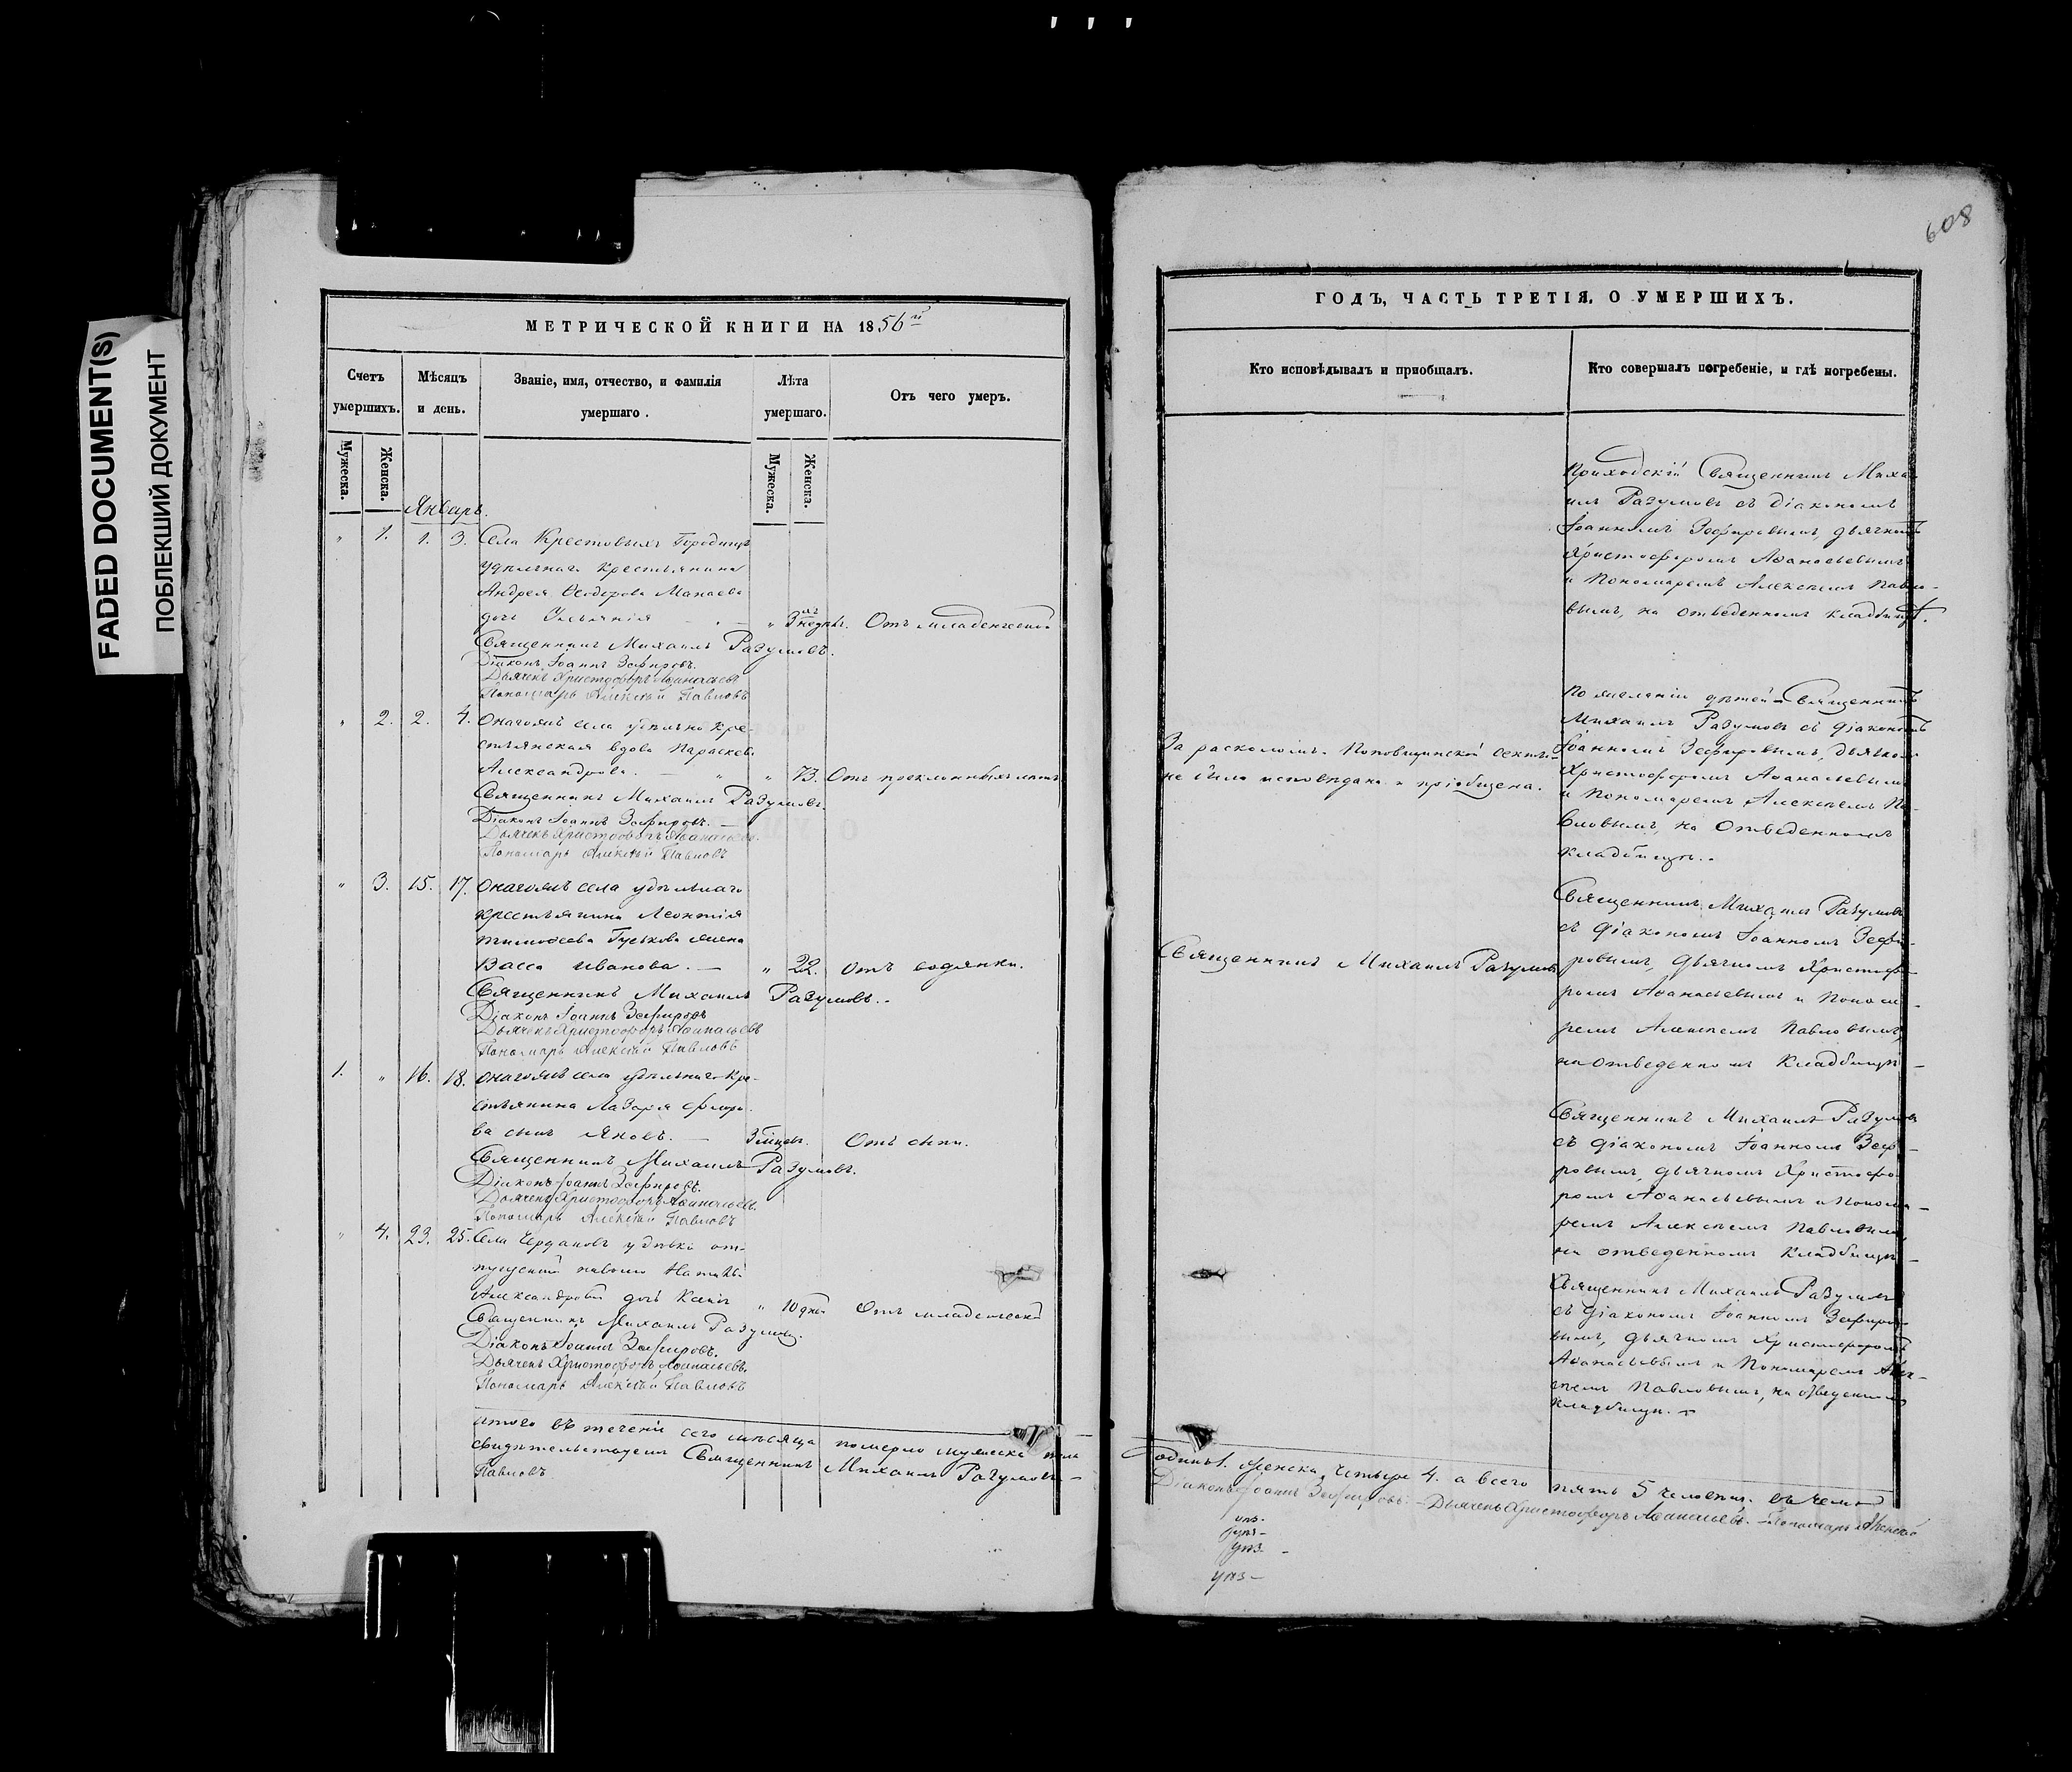 608
FADED DOCUMENT(S)
ПОБЛЕКШИЙ ДОКУМЕНТ
МЕТРИЧЕСКОЙ КНИГИ НА 1856й
Счетъ умершихъ.
Мѣсяцъ и день.
Званіе, имя, отчество, и фамилія умершаго.
Лѣта умершаго.
Отъ чего умеръ.
Мужеска.
Женска.
Мужеска.
Женска.
Январь.
" 1. 1. 3. Села Крестовыхъ Городищъ
удѣльнаго крестьянина
Андрея Ѳеодорова Манаева
дочь " 3 недѣль. Отъ младенческой
Священникъ Михаилъ Разумовъ.
Діаконъ Іоаннъ Зефировъ.
Дьячекъ Христофоръ Аѳанасьевъ
Пономарь Алексѣй Павловъ
" 2. 2. 4. Онагожъ села удѣльна кре-
стьянская вдова Параскева
Александрова. " 73. Отъ преклонныхъ лѣтъ
Священникъ Михаилъ Разумовъ.
Діаконъ Іоаннъ Зефировъ.
Дьячекъ Христофоръ Аѳанасьевъ.
Пономарь Алексѣй Павловъ
" 3. 15. 17. Онагожъ села удѣльнаго
крестьянина Леонтія
Тимоѳеева Гуськова жена
Васса Иванова. " 22. Отъ водянки.
Священникъ Михаилъ Разумовъ.
Діаконъ Іоаннъ Зефировъ
Дьячекъ Христофоръ Аѳанасьевъ
Пономарь Алексѣй Павловъ
1. " 16. 18. Онагожъ села удѣльнаго кре-
стьянина Лазаря Флоро-
ва сынъ Яковъ. Отъ оспы.
Священникъ Михаилъ Разумовъ.
Діаконъ Іоаннъ Зефировъ.
Дьячекъ Христофоръ Аѳанасьевъ.
Пономарь Алексѣй Павловъ
" 4. 23. 25. Села Чердаковъ
Александровой дочь Ксенія " 10 дней Отъ младенческой
Священникъ Михаилъ Разумовъ.
Діаконъ Іоаннъ Зефировъ.
Дьячекъ Христофоръ Аѳанасьевъ.
Пономарь Алексѣй Павловъ
Итого въ теченіи сего мѣсяца померло мужеска пола
свидѣтельствуемъ Священникъ Михаилъ Разумовъ
Павловъ
ГОДЪ, ЧАСТЬ ТРЕТІЯ, О УМЕРШИХЪ.
Кто исповѣдывалъ и пріобщалъ.
Кто совершалъ погребеніе, и гдѣ погребены.
Приходскій Священникъ Миха-
илъ Разумовъ съ діакономъ
Іоанномъ Зефировымъ, дьячкомъ
Христофоромъ Аѳанасьевымъ
и Пономаремъ Алексѣемъ Павло-
вымъ, на отведенномъ кладбищѣ.
За расколомъ Поповщинской секты
не была исповѣдана и пріобщена.
По желанію дѣтей Священникъ
Михаилъ Разумовъ съ діакономъ
Іоанномъ Зефировымъ, дьячкомъ
Христофоромъ Аѳанасьевымъ
и Пономаремъ Алексѣемъ Па-
вловымъ, на отведенномъ
кладбищѣ.
Священникъ Михаилъ Разумовъ
Священникъ Михаилъ Разумовъ
съ діакономъ Іоанномъ Зефи-
ровымъ, дьячкомъ Христофо-
ромъ Аѳанасьевымъ и Понома-
ремъ Алексѣемъ Павловымъ,
на отведенномъ кладбищѣ
Священникъ Михаилъ Разумовъ
съ діакономъ Іоанномъ Зефи-
ровымъ, дьячкомъ Христофо-
ромъ Аѳанасьевымъ и Понома-
ремъ Алексѣемъ Павловымъ,
на отведенномъ кладбищѣ
Священникъ Михаилъ Разумовъ
съ діакономъ Іоанномъ Зефиро-
вымъ, дьячкомъ Христофоромъ
Аѳанасьевымъ и Пономаремъ Алек-
сѣемъ Павловымъ, на отведенномъ
кладбищѣ.
одинъ 1. женска четыре 4. а всего пять 5 человѣкъ. въ чемъ
Діаконъ Іоаннъ Зефировъ. Дьячекъ Христофоръ Аѳанасьевъ. Пономарь Алексѣй